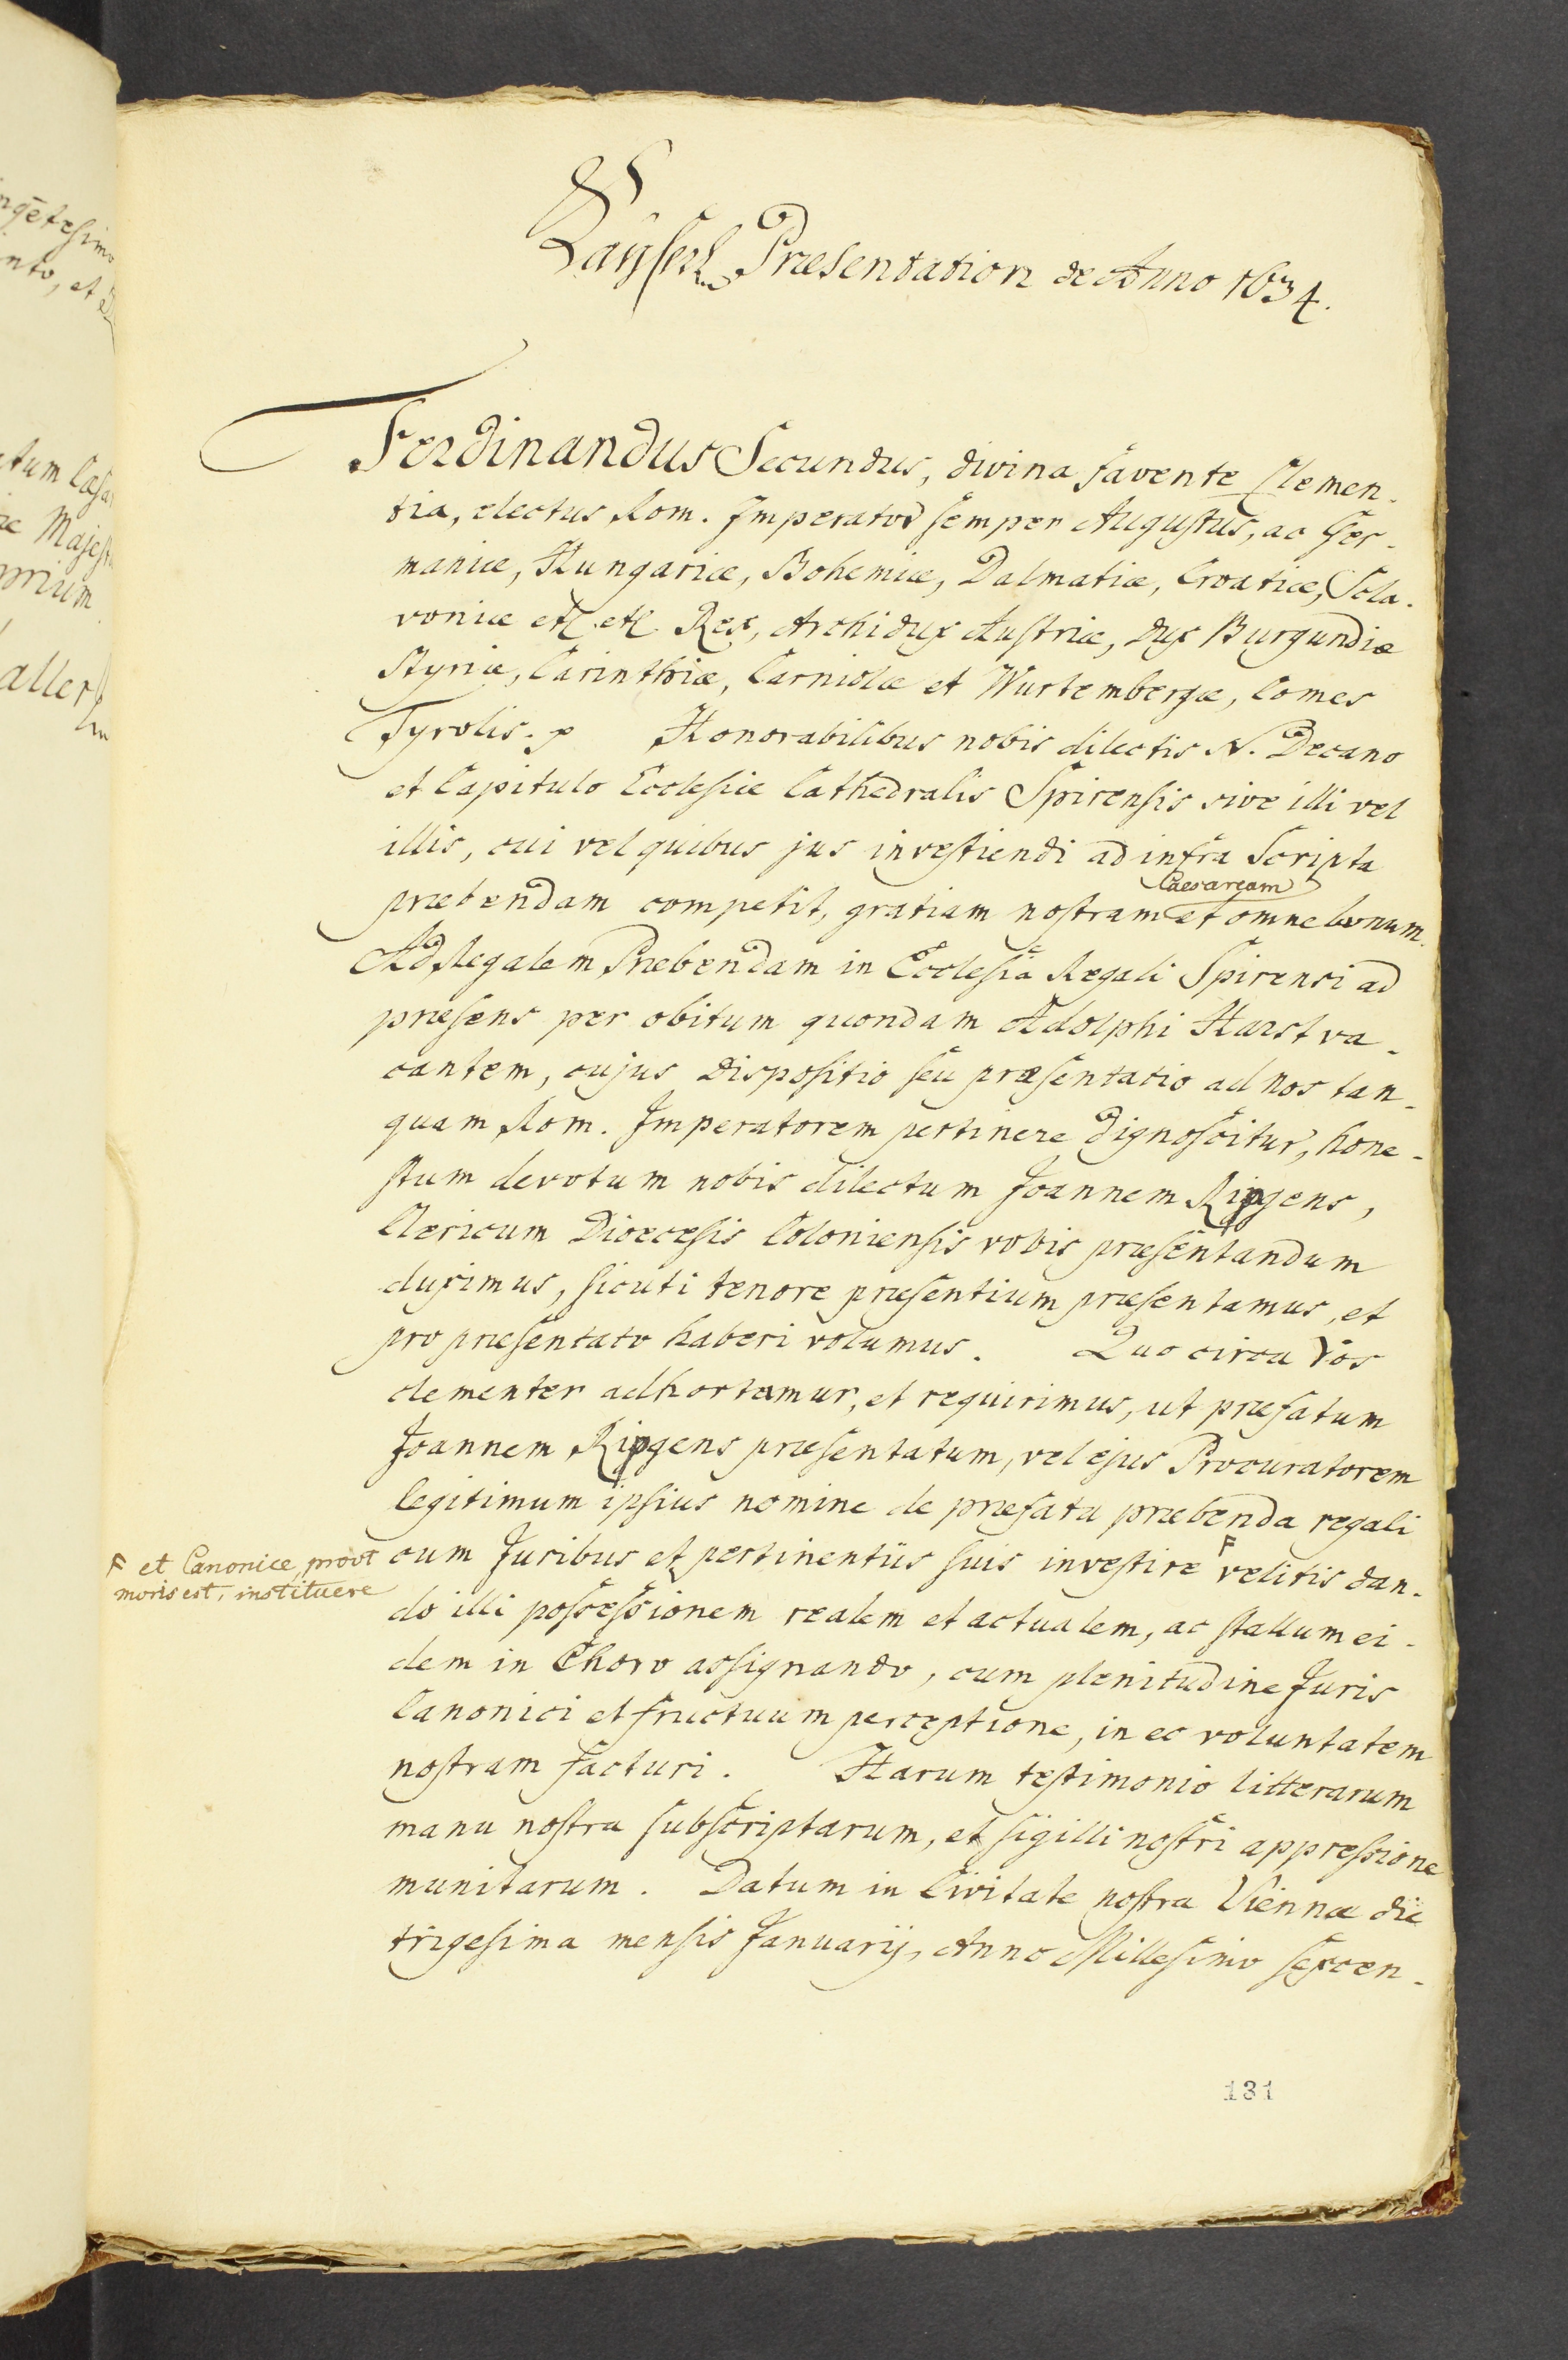 Kaÿserl. Præsentation de Anno 1634.
Ferdinandus Secundus, divina favente Clemen-
tia, electus Rom. Imperator semper Augustus, ac Ger-
maniæ, Hungariæ, Bohemiæ, Dalmatiæ, Croatiæ, Scla-
voniæ etc. etc. Rex, Archidux Austriæ, Dux Burgundiæ
Styriæ, Carinthiæ, Carniolæ et Wurtembergæ, Comes
Tyrolis. p Honorabilibus nobis dilectis N. Decano
et Capitulo Ecclesiæ Cathedralis Spirensis sive illi vel
illis, cui vel quibus jus investiendi ad infra Scripta
Caesaream
præbendam competit, gratiam nostram et omne bonum.
Ad Regalem Præbendam in Ecclesia Regali Spirensi ad
præsens per obitum quondam Adolphi Harst va-
cantem, cujus Dispositio seu præsentatio ad nos tan-
quam Rom. Imperatorem pertinere dignoscitur, hone-
stum devotum nobis dilectum Joannem Ripgens,
Clericum Dioecesis Coloniensis vobis præsentandum
duximus, sicuti tenore præsentium præsentamus, et
pro præsentato haberi volumus. Quo circa Vos
clementer adhortamur, et requirimus, ut præfatum
Joannem Ripgens præsentatum, vel ejus Procuratorem
legitimum ipsius nomine de præfata præbenda regali
cum Juribus et pertinentiis suis investire F velitis dan-
F et Canonice, prout
moris est, instituere
do illi possessionem realem et actualem, ac stallum ei-
dem in Choro assignando, cum plenitudine Juris
Canonici et fructuum perceptione, in eo voluntatem
nostram facturi. Harum testimonio litterarum
manu nostra subscriptarum, et sigilli nostri appressione
munitarum. Datum in Civitate nostra Viennæ die
trigesima mensis Januarij, Anno Millesimo sexcen-
131